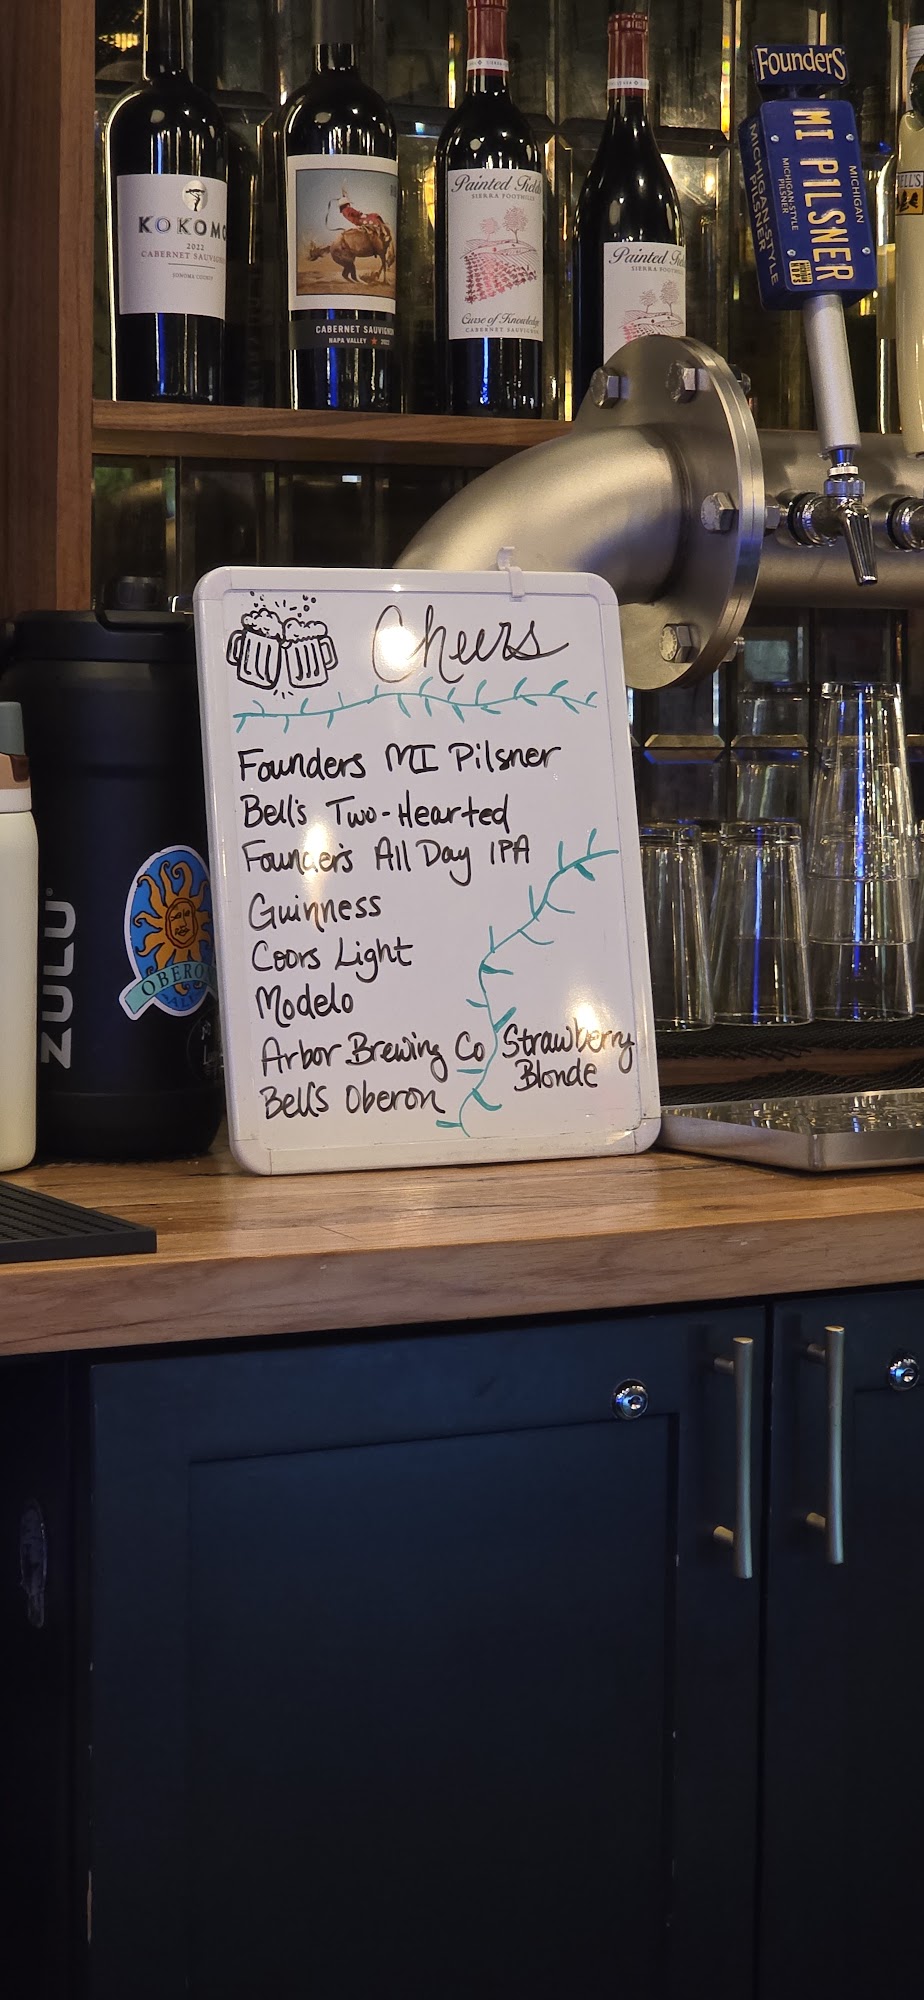 KOKOMO
2022
CABERNET SAUVIGNON
SONOMA COUNTY
CABERNET SAUVIGNON
NAPA VALLEY ★ 2022
Painted Fields
SIERRA FOOTHILLS
Curse of Knowledge
CABERNET SAUVIGNON
Painted Fields
SIERRA FOOTHILLS
FOUNDERS
MICHIGAN
MI PILSNER
MICHIGAN-STYLE
PILSNER
MICHIGAN-STYLE
PILSNER
Cheers
Founders MI Pilsner
Bell's Two-Hearted
Founder's All Day IPA
Guinness
Coors Light
Modelo
Arbor Brewing Co Strawberry
Blonde
Bell's Oberon
ZULU
OBERON